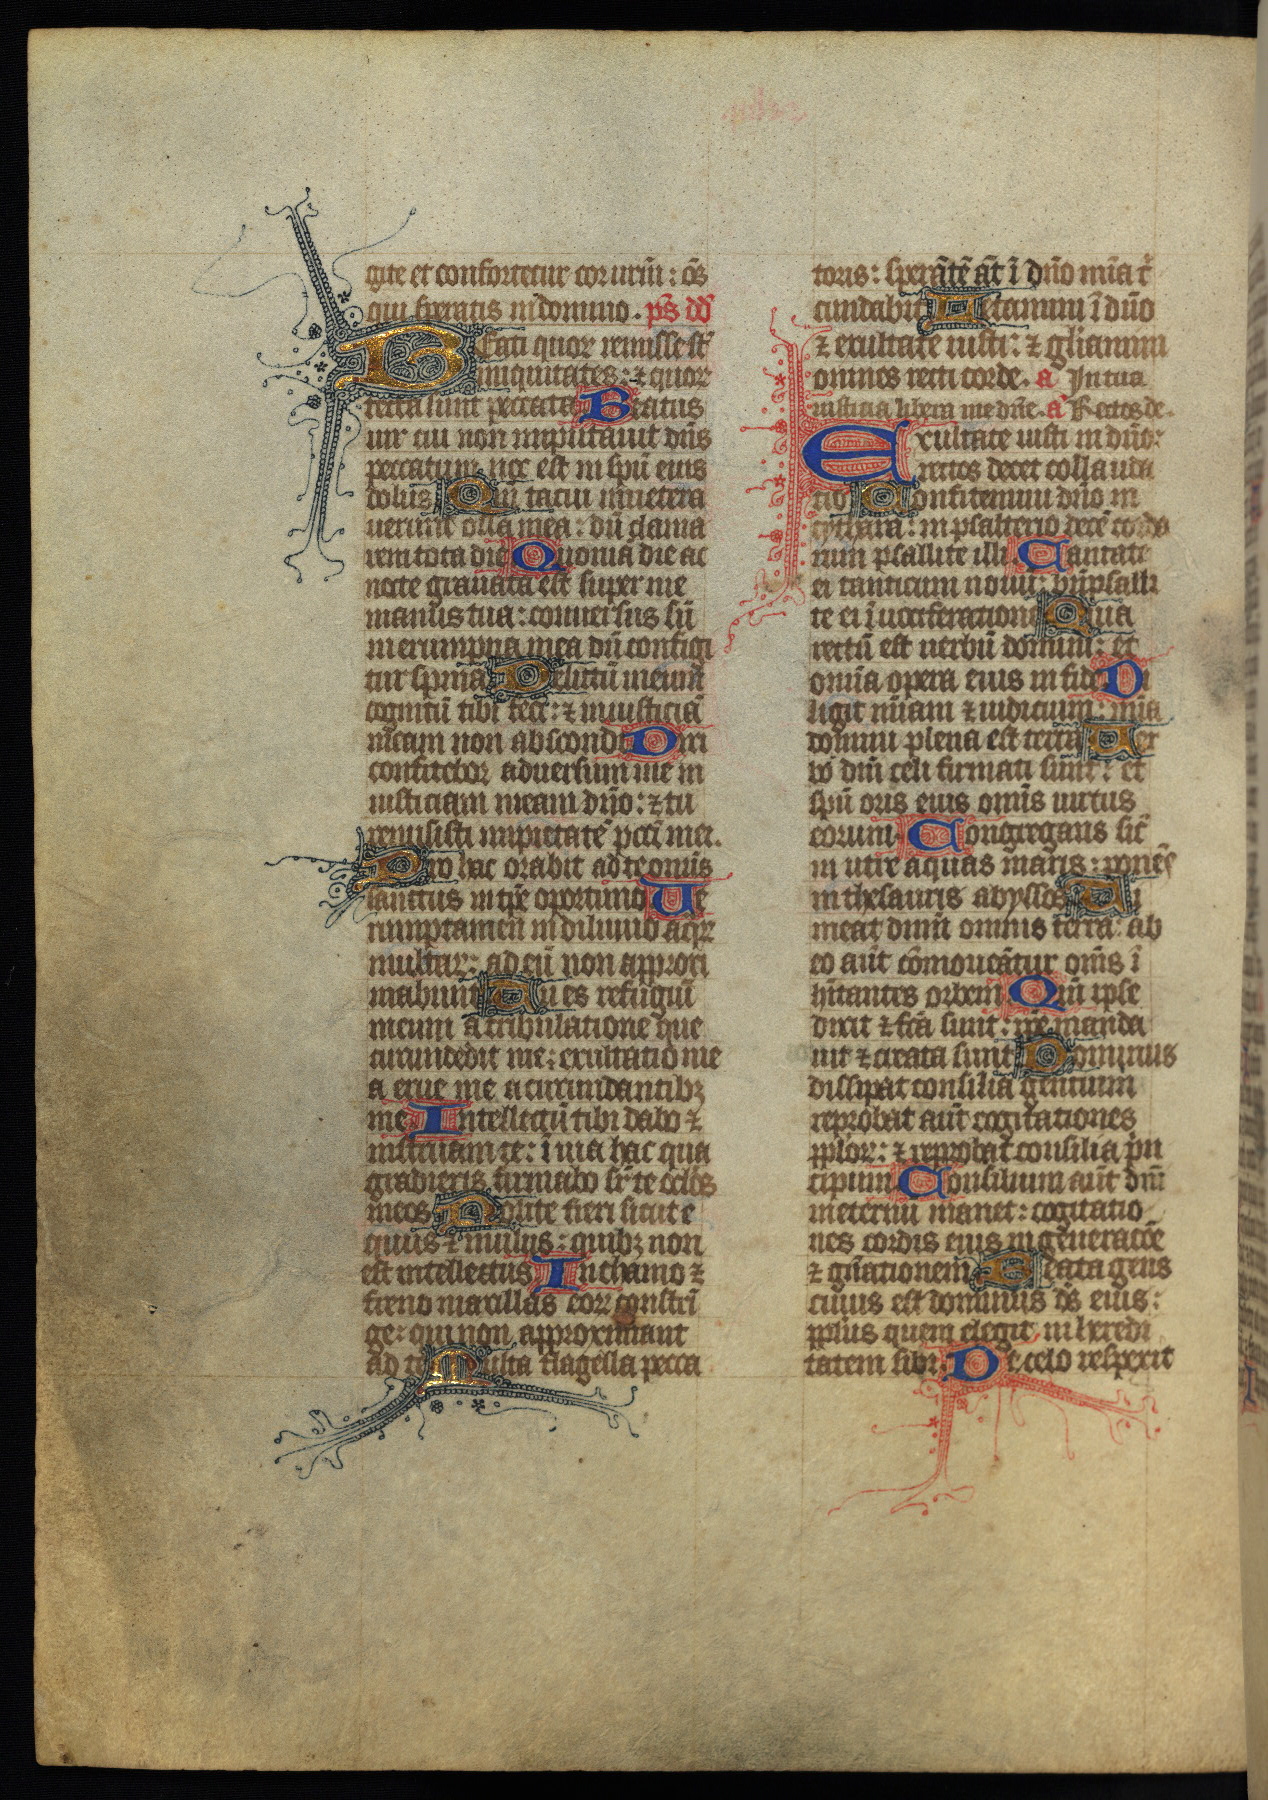 gite et confortetur cor urm̄ : oēs
qui speratis in domino . ps dd
Beati quor remisse st̄
iniquitates : ⁊ quor
tecta sunt peccata Beatus
uir cui non imputauit dn̄s
peccatum nec est in spū eius
dolus Qm̄ tacui inuetera
uerunt ossa mea : dū clama
rem tota die Quoniā die ac
nocte grauata est super me
manus tua : conuersus sū
in erumpna mea dū configi
tur spina Delictū meum
cognitū tibi feci : ⁊ iniusticiā
meam non abscondi Dixi
confitebor aduersum me in
iusticiam meam dn̄o : ⁊ tu
remisisti impietatē pccī mei .
Pro hac orabit ad te omīs
sanctus in tpē oportuno Ue
rumptamen in diluuio aqr̄
multar : ad eū non approxi
mabunt Tu es refugiū
meum a tribulatione que
circumdedit me : exultatio me
a erue me a circumdantibꝫ
me Intellectū tibi dabo ⁊
instruam te : ī uia hac qua
gradieris firmabo sr̄ te oclōs
meos Nolite fieri sicut e
quus ⁊ mulus : quibꝫ non
est intellectus In chamo ⁊
freno maxillas eor constrī
ge : qui non approximant
ad te Multa flagella pecca
toris : sperātē āt ī dn̄o mīa cr̄
cundabit Letamini ī dn̄o
⁊ exultate iusti : ⁊ glīamini
omnes recti corde . a In tua
iusticia libera me dn̄e . a Rectos de .
Exultate iusti in dn̄o :
rectos decet collauda
tio Confitemini dn̄o in
cythara : in psalterio decē corda
rum psallite illi Cantate
ei canticum nouū : bn̄ psalli
te ei ī uociferatione Quia
rectū est uerbū domini : et
omīa opera eius in fide Di
ligit mīam ⁊ iudicium : mīa
domini plena est terra Uer
bo dn̄i celi firmati sunt : et
spū oris eius omīs uirtus
eorum Congregans sic̄
in utre aquas maris : ponēs
in thesauris abyssos Ti
meat dn̄m omnis terra : ab
eo aūt cōmoueātur om̄s ī
hītantes orbem Qm̄ ipse
dixit ⁊ fcā sunt : ipē manda
uit ⁊ creata sunt Dominus
dissipat consilia gentium
reprobat aūt cogitationes
pplor : ⁊ reprobat consilia prī
cipum Consilium aūt dn̄i
in eternū manet : cogitatio
nes cordis eius in generacōe
⁊ gn̄ationem Beata gens
cuius est dominus ds̄ eius :
pplus quem elegit in heredi
tatem sibi De celo respexit